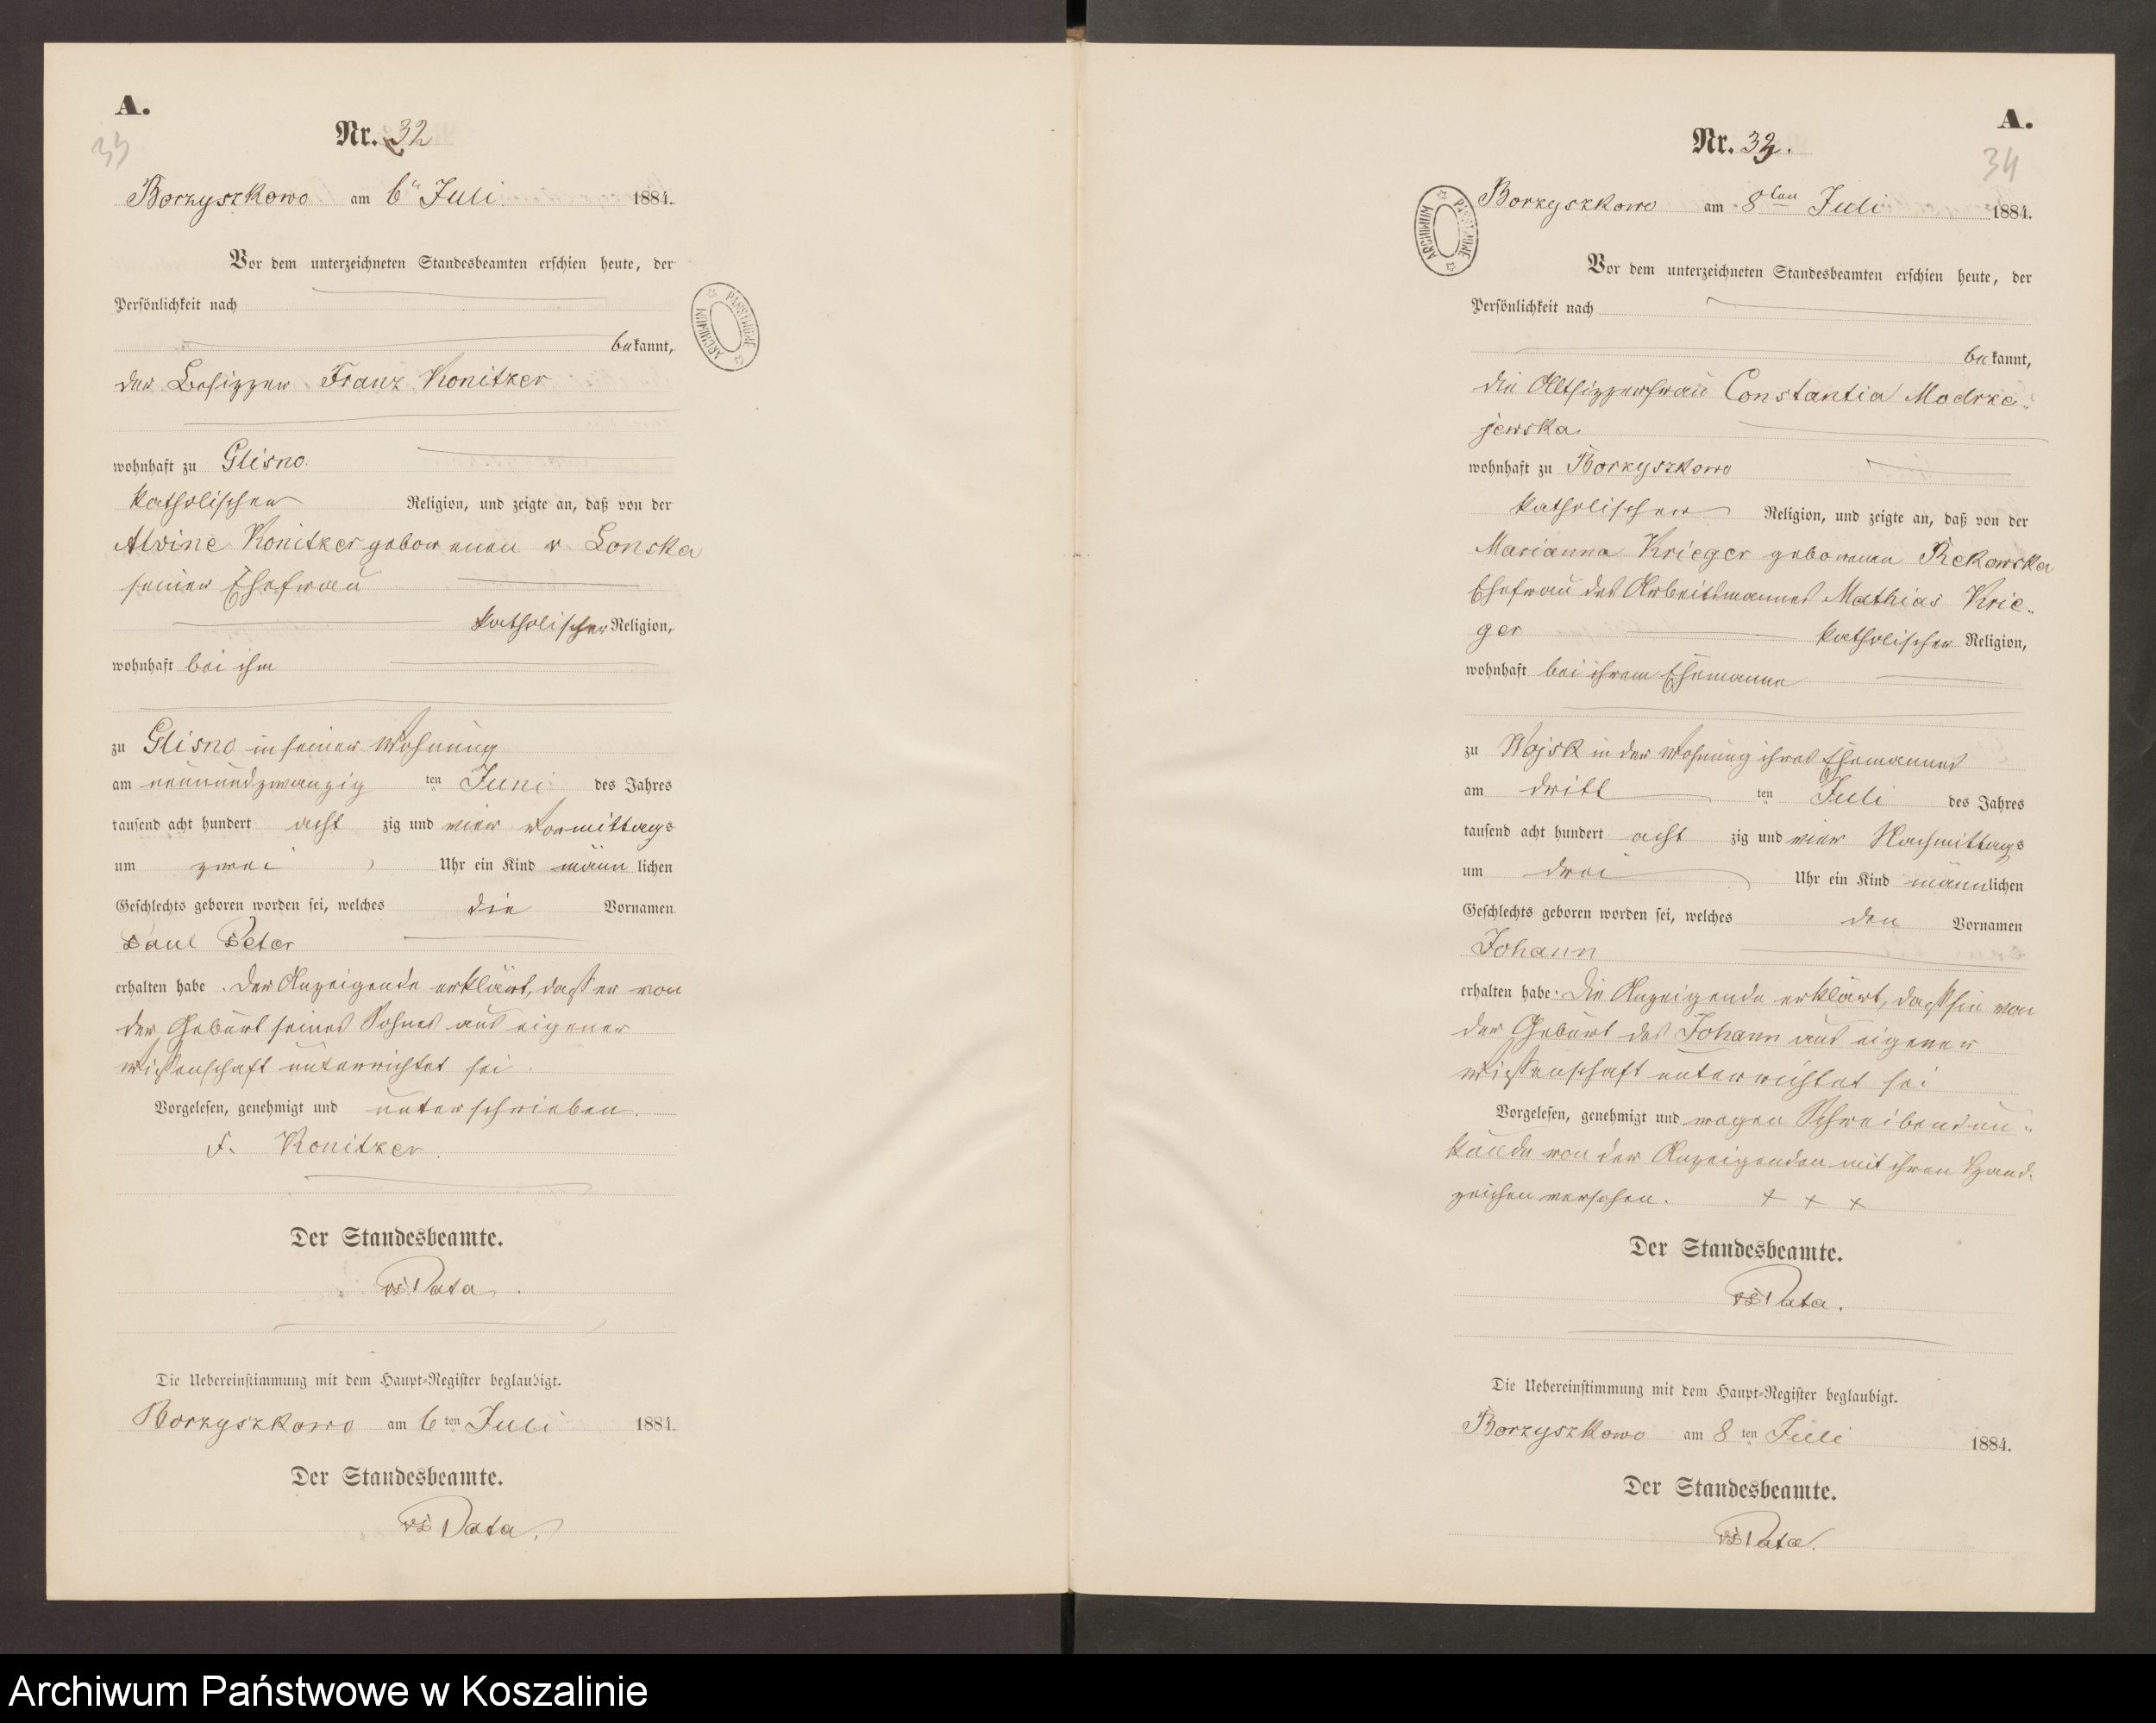 A.
33
Nr. 32
Borzyszkowo am 6ten Juli 1884.
Vor dem unterzeichneten Standesbeamten erschien heute, der
Persönlichkeit nach
bekannt,
der Besitzer Franz Konitzer
wohnhaft zu Glisno
katholischer Religion, und zeigte an, daß von der
Alvine Konitzer geborenen v Lonska
seiner Ehefrau
katholischer Religion,
wohnhaft bei ihm
zu Glisno in seiner Wohnung
am neunundzwanzig ten Juni des Jahres
tausend acht hundert acht zig und vier Vormittags
um zwei Uhr ein Kind männ lichen
Geschlechts geboren worden sei, welches die Vornamen
Paul Peter
erhalten habe. Der Anzeigende erklärt, daß er von
der Geburt seines Sohnes aus eigener
Wissenschaft unterrichtet sei
Vorgelesen, genehmigt und unterschrieben.
F. Konitzer.
Der Standesbeamte.
Pata.
Die Uebereinstimmung mit dem Haupt-Register beglaubigt.
Borzyszkowo am 6 ten Juli 1884.
Der Standesbeamte.
Pata.
A.
34
Nr. 33.
Borzyszkowo am 8ten Juli 1884.
ARCHIWUM PAŃSTWOWE
Vor dem unterzeichneten Standesbeamten erschien heute, der
Persönlichkeit nach
bekannt,
die Altsitzerfrau Constantia Modrze-
jewska
wohnhaft zu Borzyszkowo
katholischer Religion, und zeigte an, daß von der
Marianna Krieger geborenen Rekowska
Ehefrau des Arbeitsmannes Mathias Krie-
ger katholischer Religion,
wohnhaft bei ihrem Ehemanne
zu Wojsk in der Wohnung ihres Ehemannes
am dritt ten Juli des Jahres
tausend acht hundert acht zig und vier Nachmittags
um drei Uhr ein Kind männlichen
Geschlechts geboren worden sei, welches den Vornamen
Johann
erhalten habe. Die Anzeigende erklärt, daß sie von
der Geburt des Johann aus eigener
Wissenschaft unterrichtet sei
Vorgelesen, genehmigt und wegen Schreibensun-
kunde von der Anzeigenden mit ihren Hand-
zeichen versehen. + + +
Der Standesbeamte.
Pata.
Die Uebereinstimmung mit dem Haupt-Register beglaubigt.
Borzyszkowo am 8 ten Juli 1884.
Der Standesbeamte.
Pata.
Archiwum Państwowe w Koszalinie